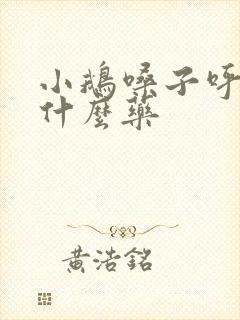 小鵝嗓子呼
什麼藥
黃浩銘